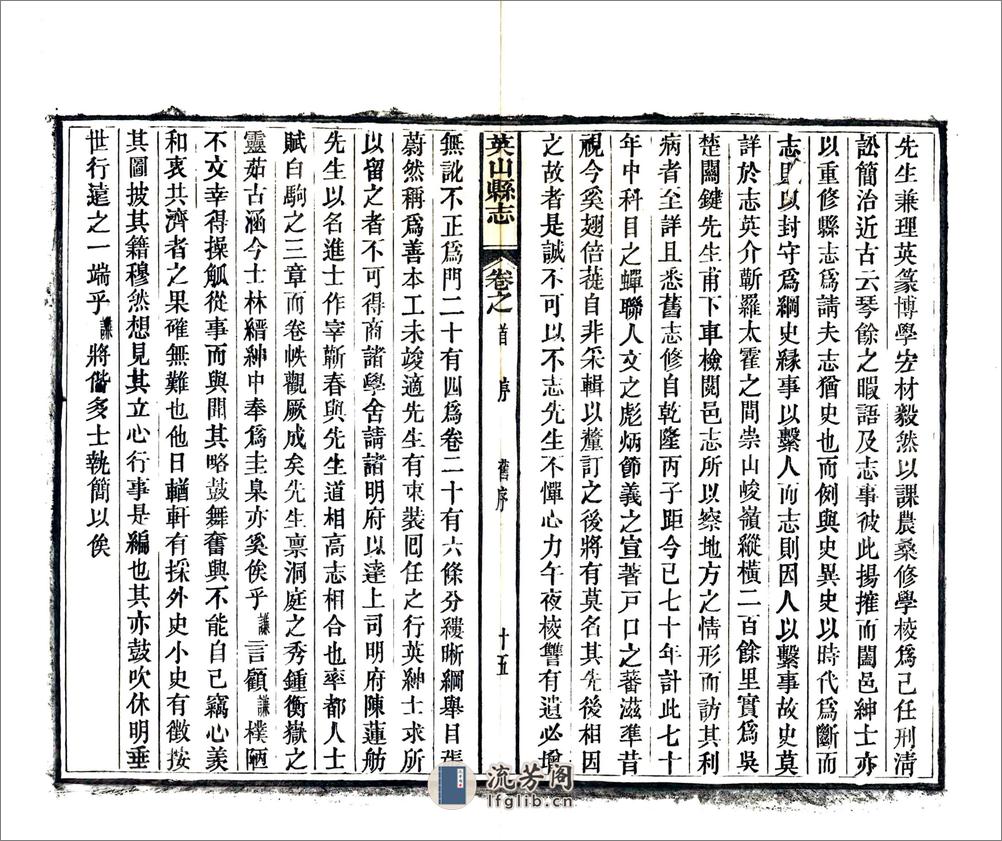 先生兼理英篆博學宏材毅然以課農桑修學校爲己任刑清
訟簡治近古云琴餘之暇語及志事彼此揚搉而闔邑紳士亦
以重修縣志爲請夫志猶史也而例與史異史以時代爲斷而
志則以封守爲綱史緣事以繫人而志則因人以繫事故史莫
詳於志英介蘄羅太霍之間崇山峻嶺縱橫二百餘里實爲吳
楚關鍵先生甫下車檢閱邑志所以察地方之情形而訪其利
病者至詳且悉舊志修自乾隆丙子距今已七十年計此七十
年中科目之蟬聯人文之彪炳節義之宣著戸口之蕃滋準昔
視今奚翅倍蓰自非采輯以釐訂之後將有莫名其先後相因
之故者是誠不可以不志先生不憚心力午夜校讐有遺必增
英山縣志 卷之首 序 舊序 十五
無訛不正爲門二十有四爲卷二十有六條分縷晰綱舉目張
蔚然稱爲善本工未竣適先生有束裝囘任之行英紳士求所
以留之者不可得商諸學舍請諸明府以達上司明府陳蓮舫
先生以名進士作宰蘄春與先生道相高志相合也率都人士
賦白駒之三章而卷帙觀厥成矣先生禀洞庭之秀鍾衡嶽之
靈茹古涵今士林縉紳中奉爲圭臬亦奚俟乎謙言顧謙樸陋
不文幸得操觚從事而與聞其略鼓舞奮興不能自己竊心羨
和衷共濟者之果確無難也他日輶軒有採外史小史有徵按
其圖披其籍穆然想見其立心行事是編也其亦鼓吹休明垂
世行遠之一端乎謙將偕多士執簡以俟
流芳阁
lfglib.cn